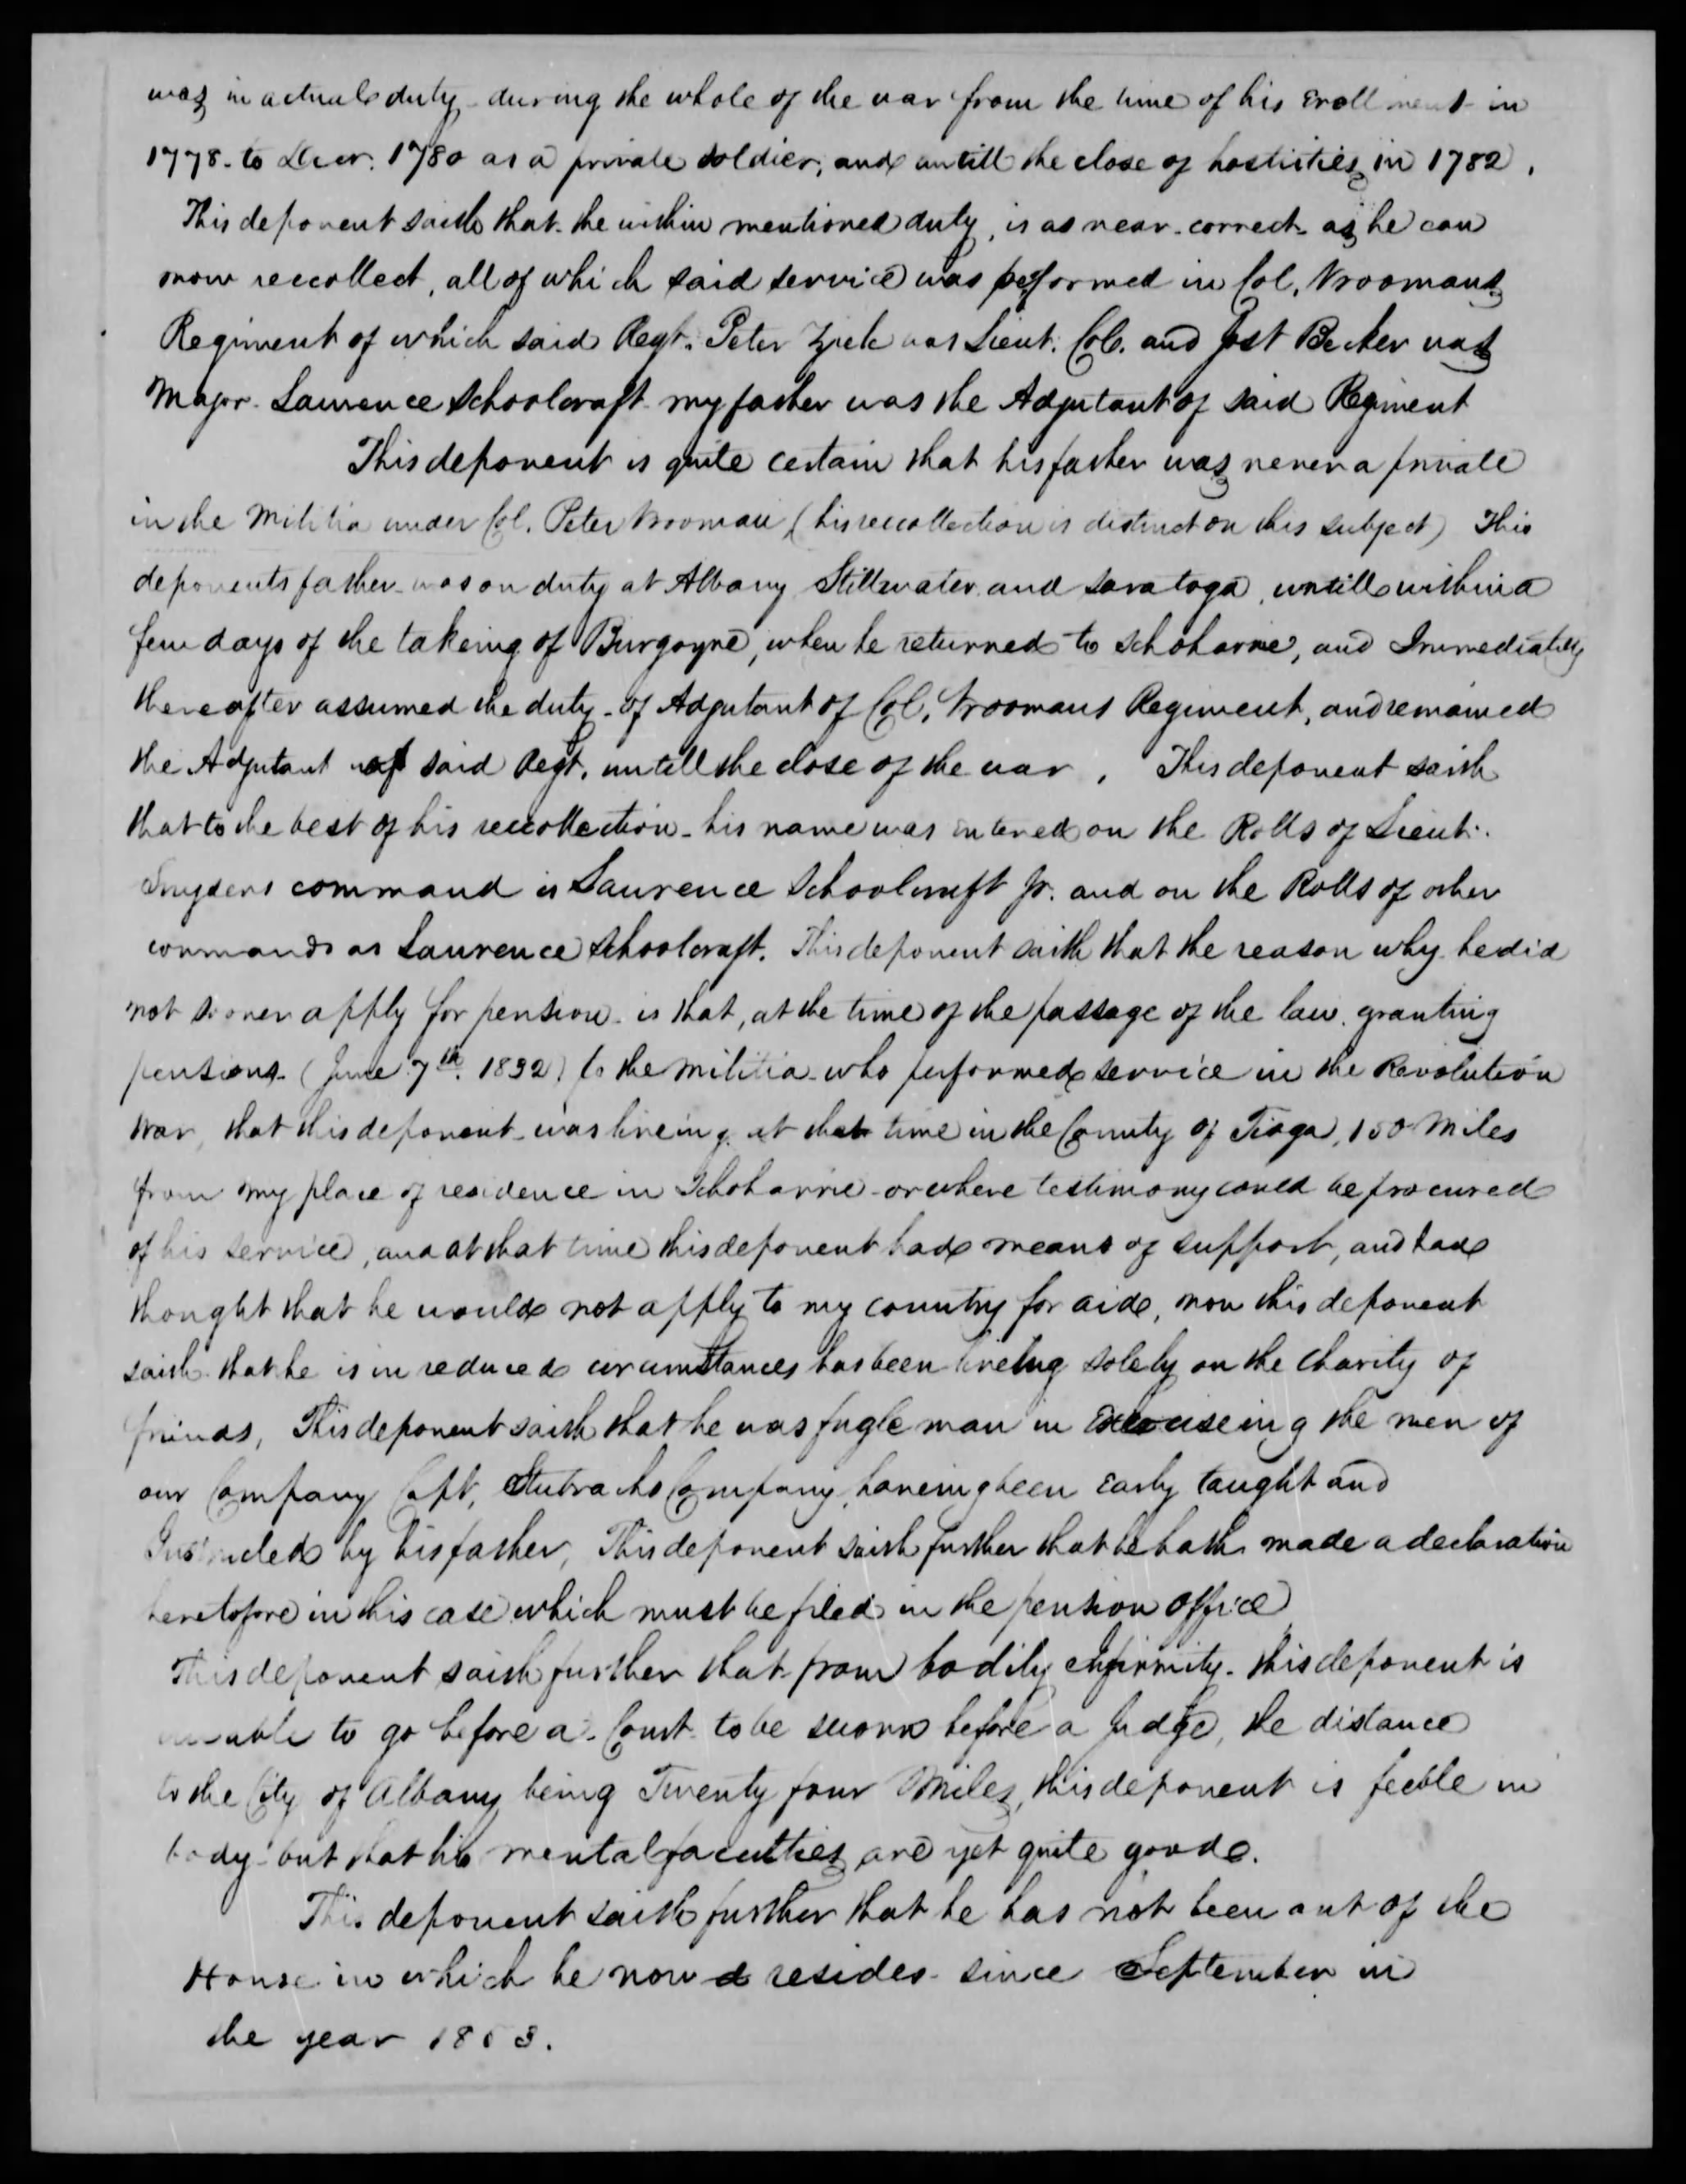 was in actual duty during the whole of the war from the time of his Enrollment in
1778 - to Decr. 1780 as a private soldier, and untill the close of hostilities in 1782.
This deponent saith that the within mentioned duty, is as near correct as he can
now reccollect, all of which said service was performed in Col. Vroomans
Regiment of which said Regt. Peter Ziele was Lieut. Col. and Jost Becker was
Major. Laurence Schoolcraft my father was the Adjutant of said Regiment
This deponent is quite certain that his father was never a private
in the Militia under Col. Peter Vrooman (his reccollection is distinct on this subject) This
deponents father was on duty at Albany Stillwater and Saratoga, untill within a
few days of the takeing of Burgoyne, when he returned to Schoharrie, and Immediately
thereafter assumed the duty of Adjutant of Col. Vroomans Regiment, and remained
the Adjutant of said Regt. untill the close of the war. This deponent saith
that to the best of his reccollection his name was entered on the Rolls of Lieut.
Snyders command is Laurence Schoolcraft Jr. and on the Rolls of other
commands as Laurence Schoolcraft. This deponent saith that the reason why he did
not sooner apply for pension is that, at the time of the passage of the law granting
pensions (June 7th. 1832) to the militia who performed service in the Revolution
War, that this deponent was liveing at that time in the County of Tioga, 150 Miles
from my place of residence in Schoharrie or where testimony could be procured
of his service, and at that time this deponent had means of support, and had
thought that he would not apply to my country for aid, now this deponent
saith that he is in reduced circumstances has been liveing solely on the charity of
friends, This deponent saith that he was fugle man in Exercise ing the men of
our Company Capt. Stubrachs Company, haveing been Early taught and
Instructed by his father, This deponent saith further that he hath made a declaration
heretofore in this case which must be filed in the pension office
This deponent saith further that from bodily enfirmity this deponent is
unable to go before a Court to be sworn before a Judge, the distance
to the City of Albany being Twenty four Miles, this deponent is feeble in
body but that his mental faculties are yet quite good.
This deponent saith further that he has not been out of the
House in which he now resides since September in
the year 1853.